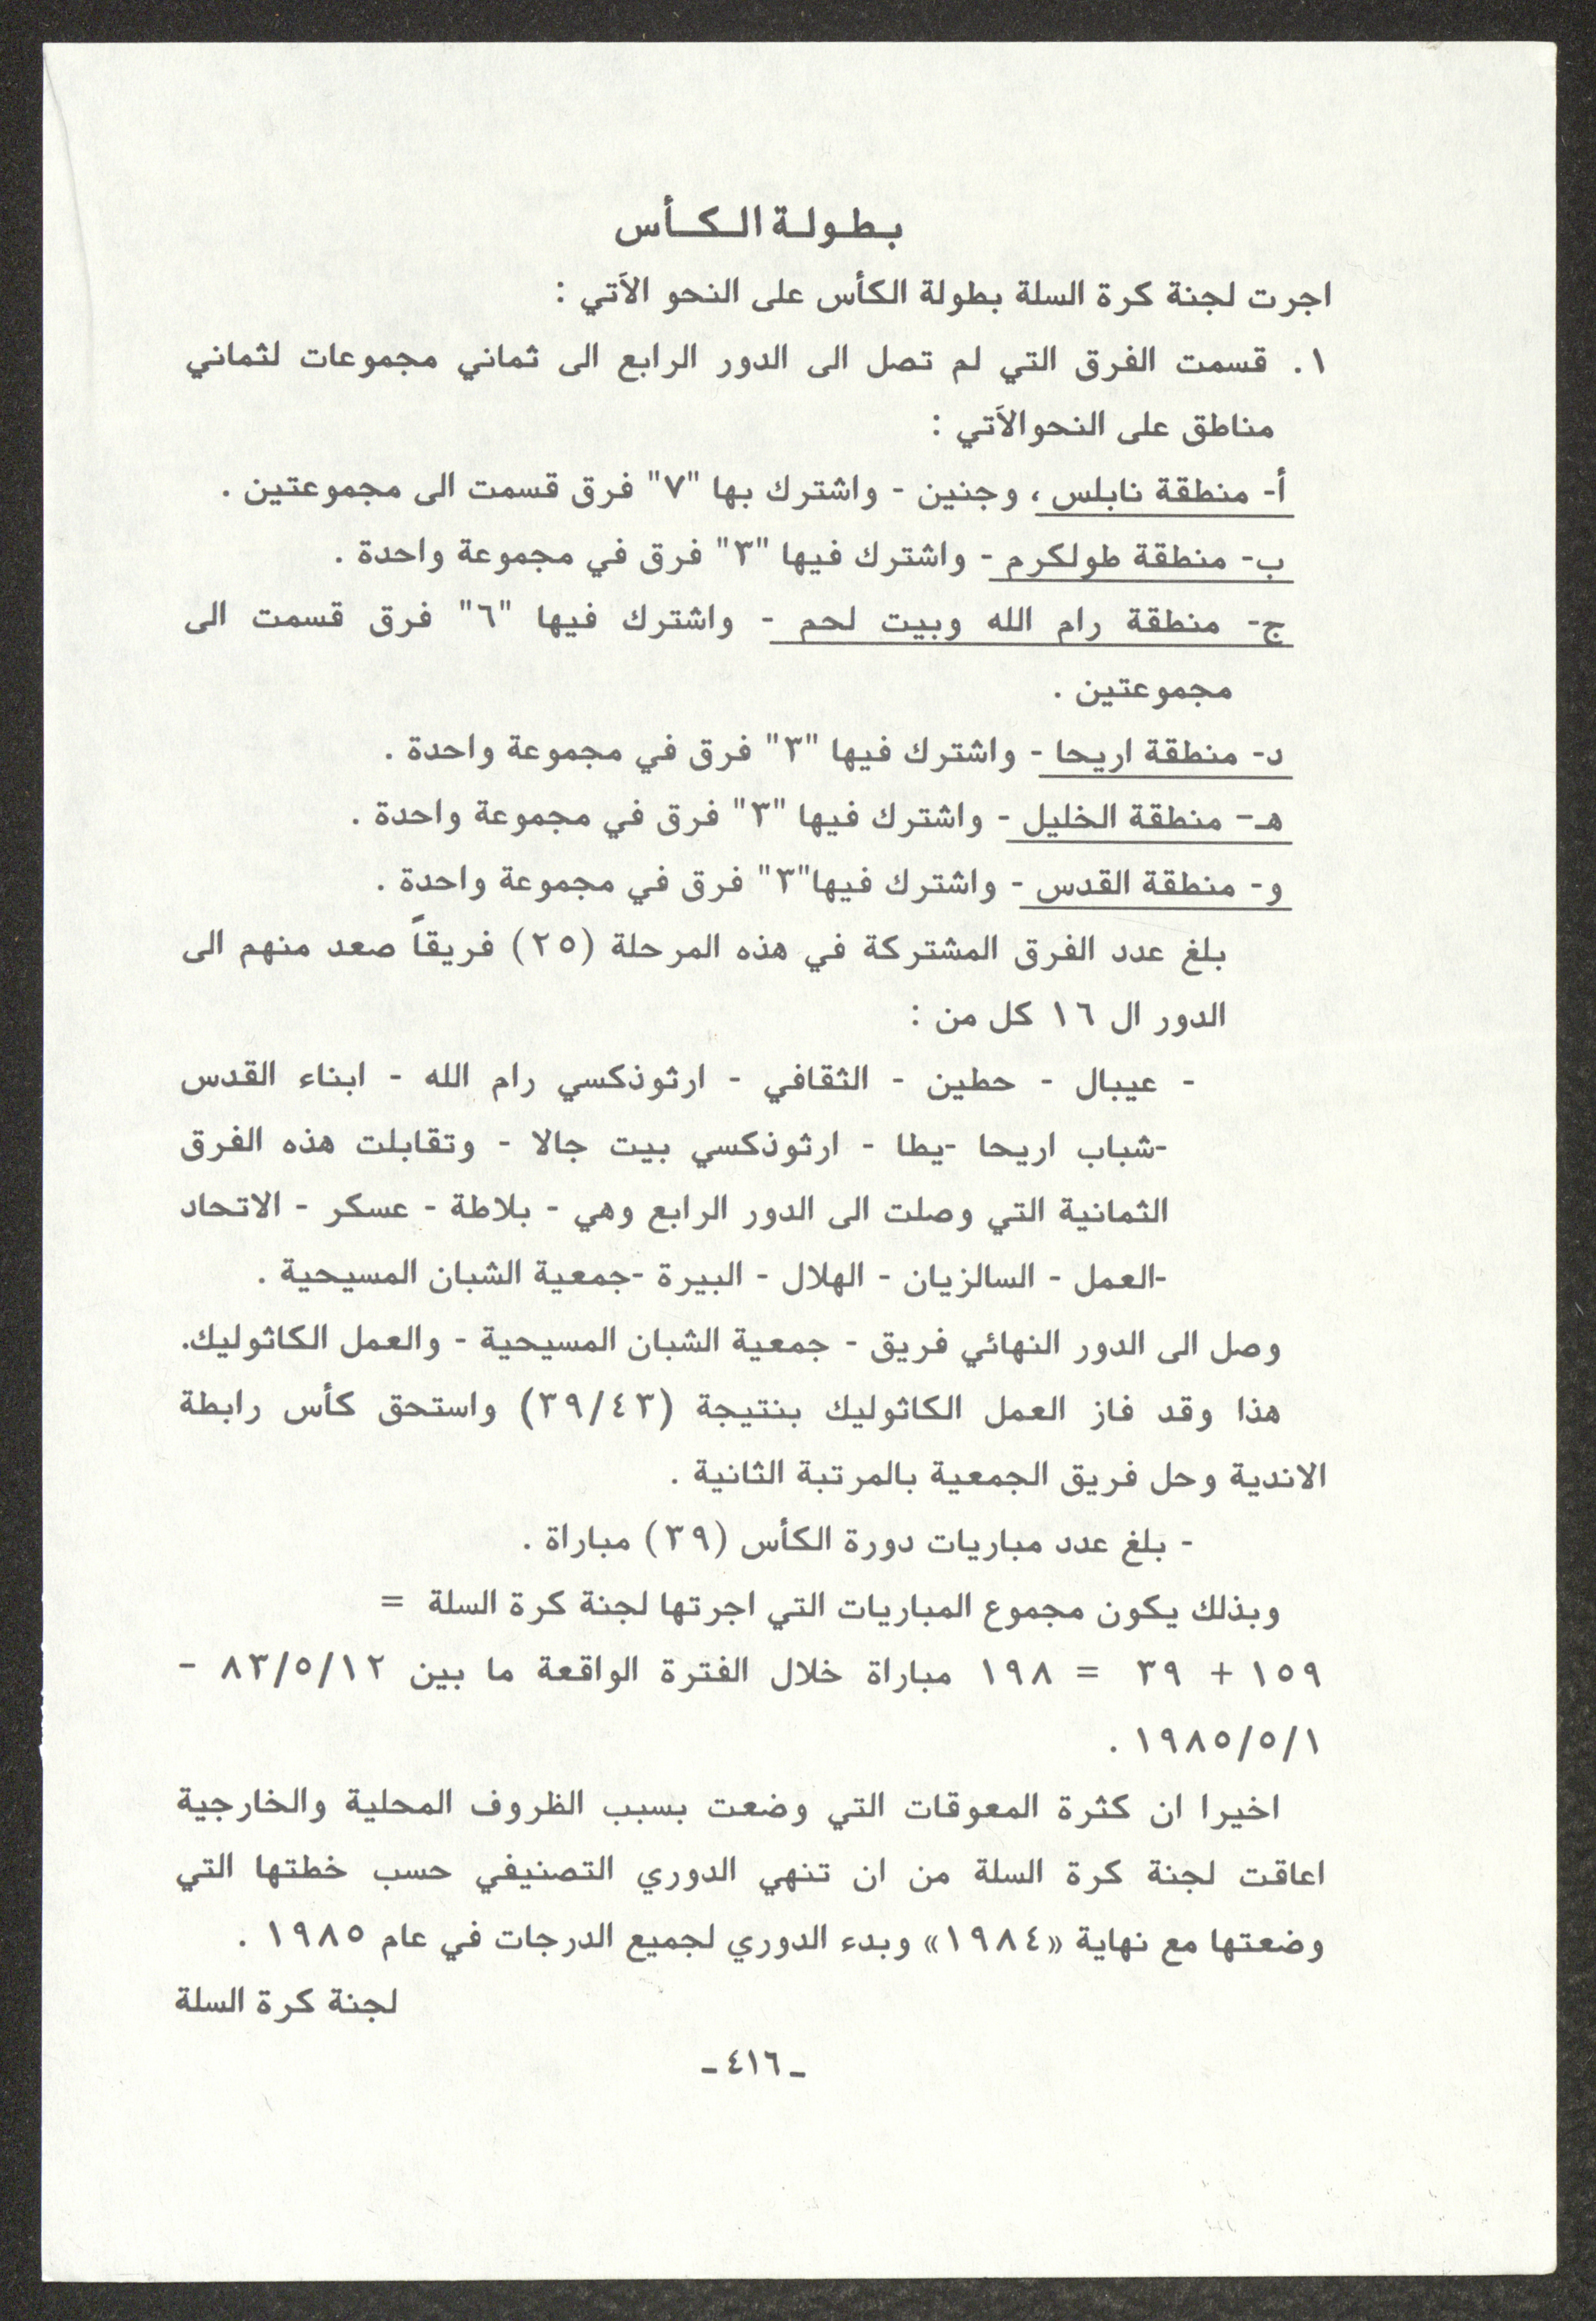 بطولة الكأس
اجرت لجنة كرة السلة بطولة الكأس على النحو الآتي :
١. قسمت الفرق التي لم تصل الى الدور الرابع الى ثماني مجموعات لثماني
مناطق على النحو الآتي :
أ- منطقة نابلس ، وجنين - واشترك بها "٧" فرق قسمت الى مجموعتين .
ب- منطقة طولكرم - واشترك فيها "٣" فرق في مجموعة واحدة .
ج- منطقة رام الله وبيت لحم - واشترك فيها "٦" فرق قسمت الى
مجموعتين .
د- منطقة اريحا - واشترك فيها "٣" فرق في مجموعة واحدة .
هـ- منطقة الخليل - واشترك فيها "٣" فرق في مجموعة واحدة .
و- منطقة القدس - واشترك فيها"٣" فرق في مجموعة واحدة .
بلغ عدد الفرق المشتركة في هذه المرحلة (٢٥) فريقاً صعد منهم الى
الدور ال ١٦ كل من :
- عيبال - حطين - الثقافي - ارثوذكسي رام الله - ابناء القدس
-شباب اريحا -يطا - ارثوذكسي بيت جالا - وتقابلت هذه الفرق
الثمانية التي وصلت الى الدور الرابع وهي - بلاطة - عسكر - الاتحاد
-العمل - السالزيان - الهلال - البيرة -جمعية الشبان المسيحية .
وصل الى الدور النهائي فريق - جمعية الشبان المسيحية - والعمل الكاثوليك.
هذا وقد فاز العمل الكاثوليك بنتيجة (٣٩/٤٣) واستحق كأس رابطة
الاندية وحل فريق الجمعية بالمرتبة الثانية .
- بلغ عدد مباريات دورة الكأس (٣٩) مباراة .
وبذلك يكون مجموع المباريات التي اجرتها لجنة كرة السلة =
١٥٩ + ٣٩ = ١٩٨ مباراة خلال الفترة الواقعة ما بين ٨٣/٥/١٢ -
١٩٨٥/٥/١ .
اخيرا ان كثرة المعوقات التي وضعت بسبب الظروف المحلية والخارجية
اعاقت لجنة كرة السلة من ان تنهي الدوري التصنيفي حسب خطتها التي
وضعتها مع نهاية «١٩٨٤» وبدء الدوري لجميع الدرجات في عام ١٩٨٥ .
لجنة كرة السلة
-٤١٦-